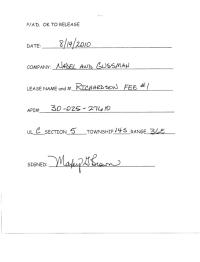 P/AD. OK TO RELEASE
DATE: 8/19/2010
COMPANY: NADEL AND GUSSMAN
LEASE NAME and #. RICHARDSON FEE #1
API# 30-025-27610
UL C SECTION 5 TOWNSHIP 14S RANGE 36E
SIGNED: